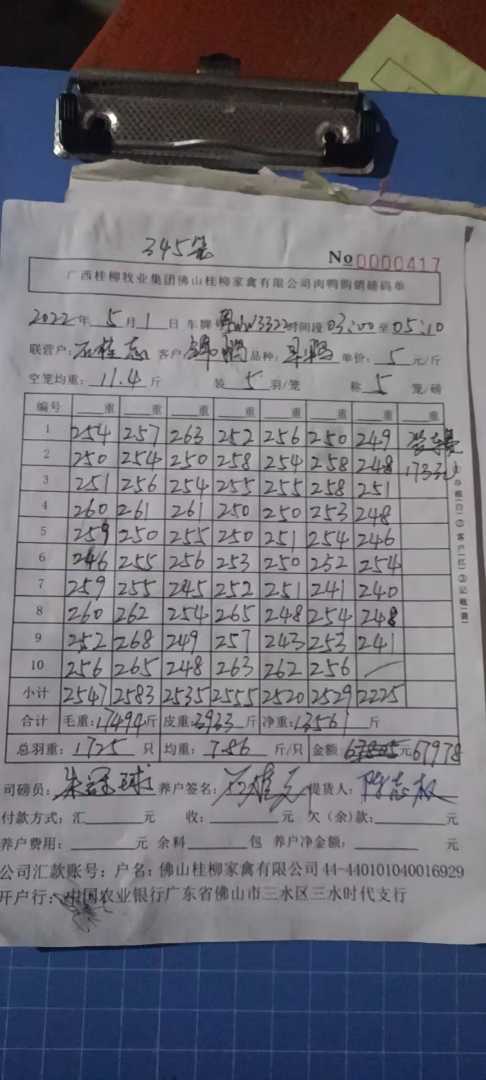 345笼
No 0000417
广西桂柳牧业集团佛山桂柳家禽有限公司肉鸭购销磅码单
2022年 5月1日 车牌 3322 时间段 03:00 至 05:10
联营户: 石桂志 客户: 品种: 单价: 5 元/斤
空笼均重: 11.4 斤 装 5 羽/笼 称 5 笼/磅
编号 重 重 重 重 重 重 重 重
1 254 257 263 252 256 250 249
2 250 254 250 258 254 258 248 1733
3 251 256 254 255 255 258 251
4 260 261 261 250 250 253 248
5 259 250 255 250 251 254 246
6 246 255 256 253 250 252 254
7 259 255 245 252 251 241 240
8 260 262 254 265 248 254 248
9 252 268 249 257 243 253 241
10 256 265 248 263 262 256
小计 2547 2583 2535 2555 2520 2529 2225
合计 毛重: 17494 斤 皮重: 3933 斤 净重: 13561 斤
总羽重: 1725 只 均重: 7.86 斤/只 金额 67805 元 67978
司磅员: 养户签名: 提货人:
付款方式: 汇 元 收: 元 欠(余)款: 元
养户费用: 元 余料 包 养户净金额: 元
公司汇款账号: 户名: 佛山桂柳家禽有限公司 44-440101040016929
开户行: 中国农业银行广东省佛山市三水区三水时代支行